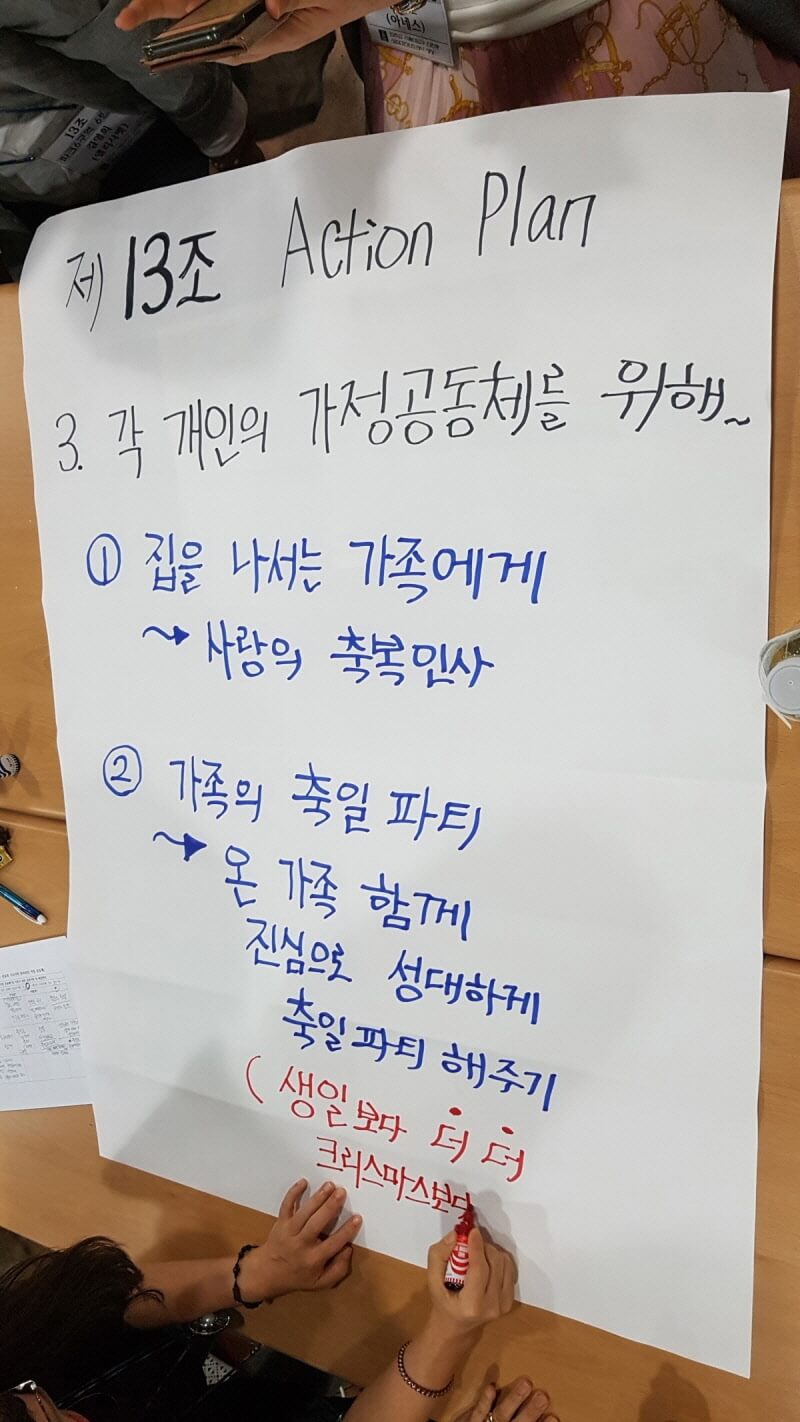 (아네스)
13조
제 13조 Action Plan
3. 각 개인의 가정공동체를 위해~
① 집을 나서는 가족에게
↝ 사랑의 축복인사
② 가족의 축일 파티
↝ 온 가족 함께
진심으로 성대하게
축일파티 해주기
( 생일보다 더 더
크리스마스보다